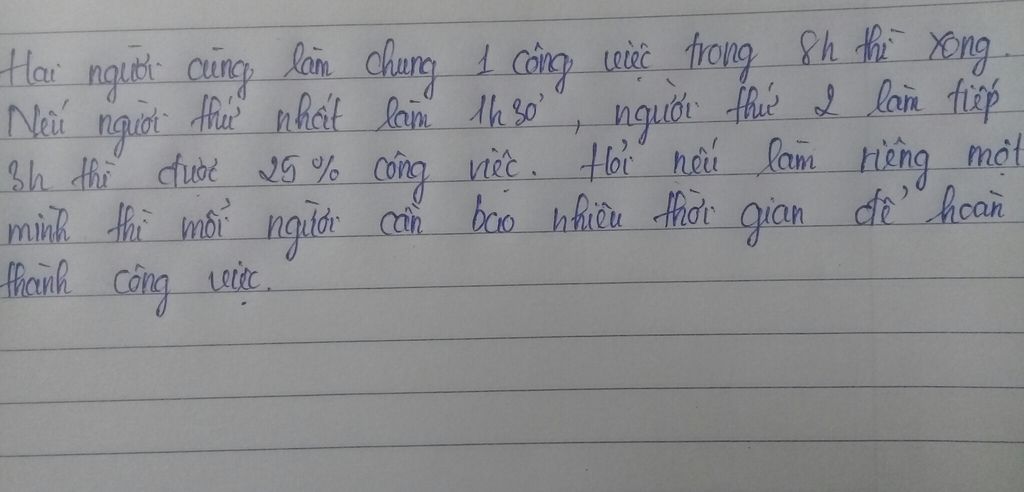 Hai người cùng làm chung 1 công việc trong 8h thì xong.
Nếu người thứ nhất làm 1h30', người thứ 2 làm tiếp
3h thì được 25% công việc. Hỏi nếu làm riêng một
mình thì mỗi người cần bao nhiêu thời gian để hoàn
thành công việc.